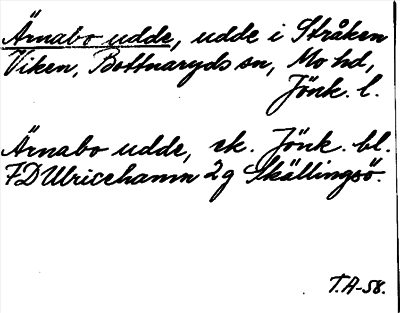 Ärnabo udde, udde i Stråken
Viken, Bottnaryds sn, Mo hd,
Jönk. l.
Ärnabo udde, ek. Jönk. bl.
7D Ulricehamn 2g Skällingsö.
T.A-58.